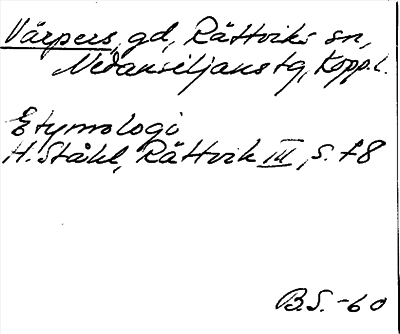 Värpers, gd, Rättviks sn,
Nedansiljans tg, Kopp.l.
Etymologi
H. Ståhl, Rättvik III, s. 78
B.S. -60